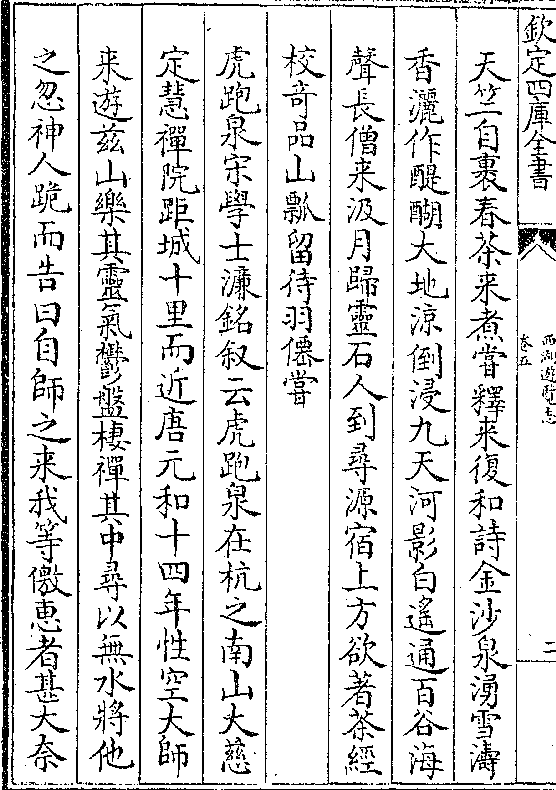 欽定四庫全書
西湖遊覽志
卷五
二
天竺自裹春茶来煮嘗釋来復和詩金沙泉湧雪濤
香灑作醍醐大地涼倒浸九天河影白遙通百谷海
聲長僧来汲月歸靈石人到尋源宿上方欲著茶經
校竒品山瓢留待羽僊嘗
虎跑泉宋學士濂銘叙云虎跑泉在杭之南山大慈
定慧禪院距城十里而近唐元和十四年性空大師
来遊茲山樂其靈氣鬱盤棲禪其中尋以無水將他
之忽神人跪而告曰自師之来我等儌惠者甚大奈